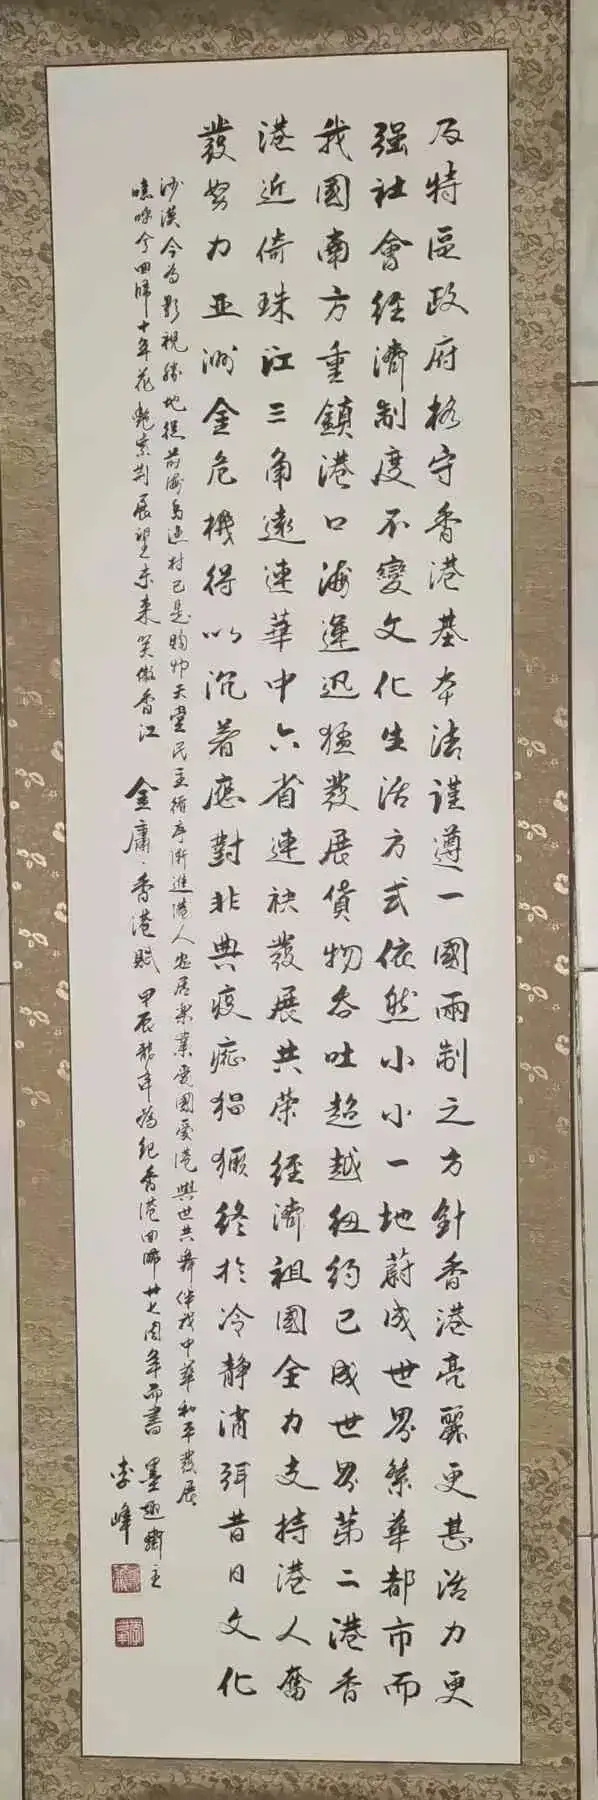 及特區政府格守香港基本法謹遵一國兩制之方針香港亮麗更甚活力更
强社會經濟制度不變文化生活方式依然小小一地蔚成世界繁華都市而
我國南方重鎮港口海運迅猛發展貨物吞吐超越紐約已成世界第二港香
港近倚珠江三角遠連華中六省連袂發展共榮經濟祖國全力支持港人奮
發努力亚洲金危機得以沉着應對非典疫症猖獗終於冷静消弭昔日文化
沙漠今為影視勝地從前海島漁村已是購物天堂民主循序漸進港人安居樂業愛國愛港與世共舞伴我中華和平發展
嘻嘻兮回歸十年花艷紫荆展望未来笑傲香江 金庸·香港賦 甲辰龍年為纪香港回歸廿七周年而書 墨趣齋主
李峰